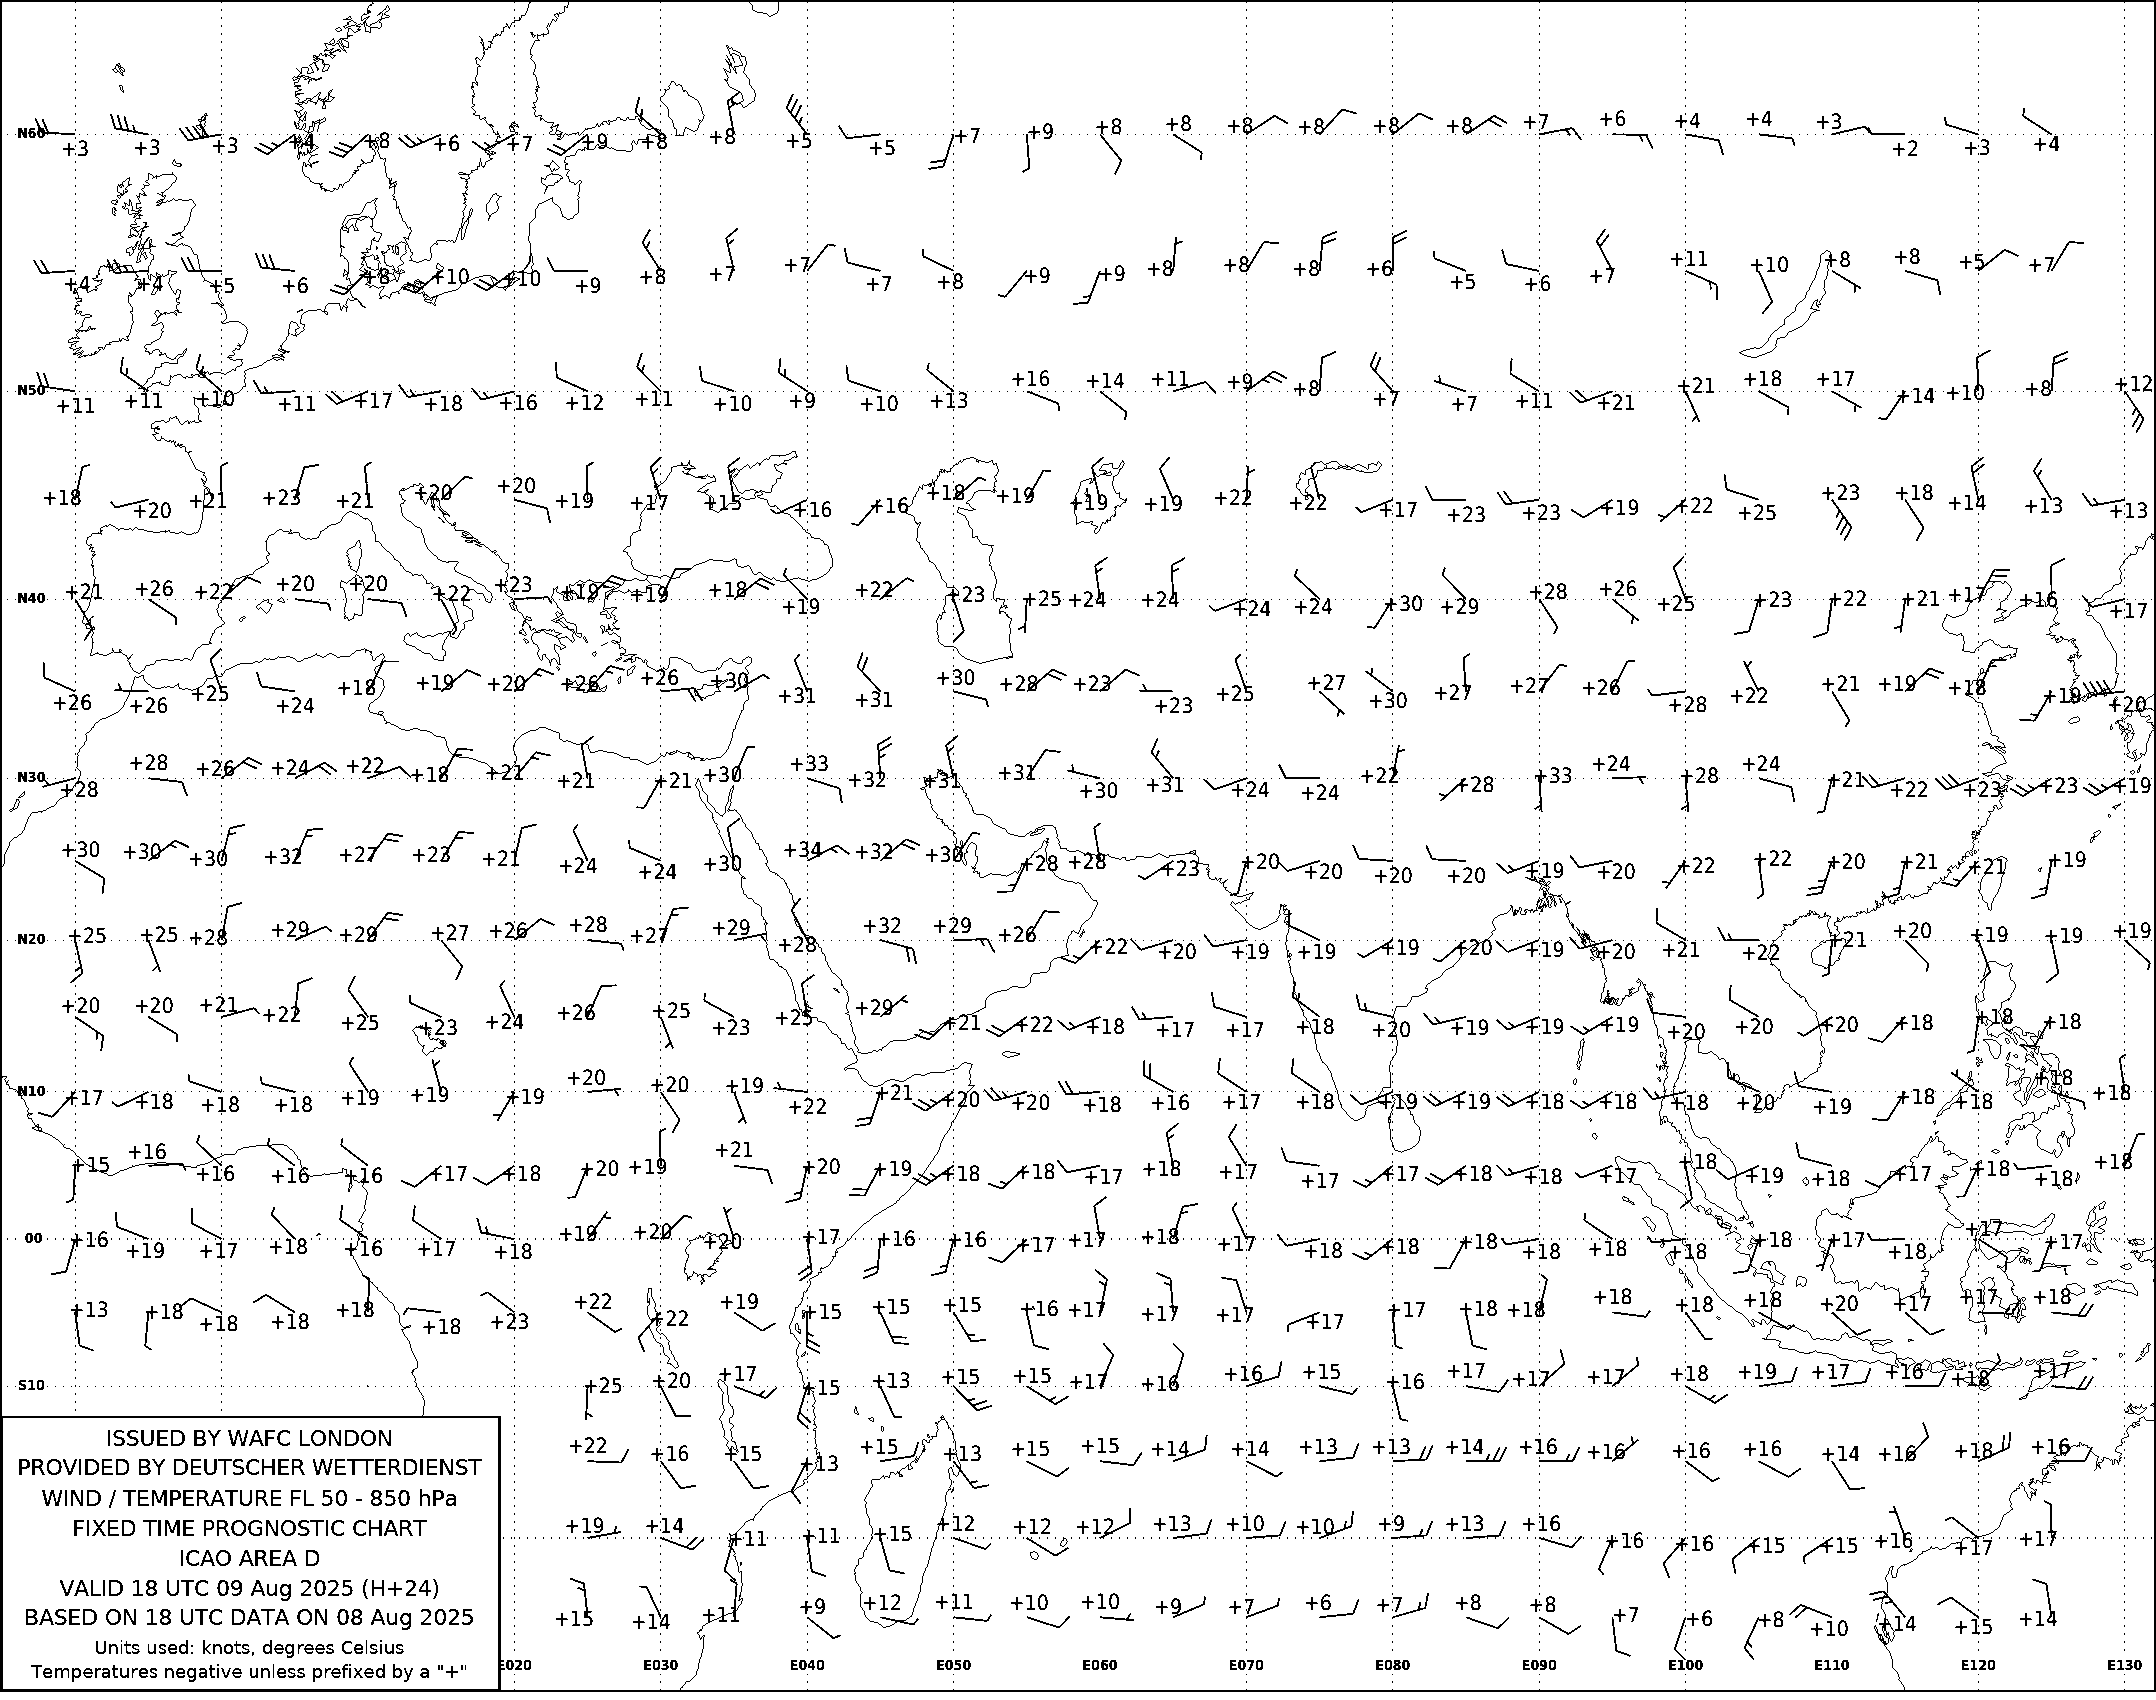 N60 +3 +3 +3 +4 +8 +6 +7 +9 +8 +8 +5 +5 +7 +9 +8 +8 +8 +8 +8 +8 +7 +6 +4 +4 +3 +2 +3 +4
+4 +4 +5 +6 +8 +10 +10 +9 +8 +7 +7 +7 +8 +9 +9 +8 +8 +8 +6 +5 +6 +7 +11 +10 +8 +8 +5 +7
N50 +11 +11 +10 +11 +17 +18 +16 +12 +11 +10 +9 +10 +13 +16 +14 +11 +9 +8 +7 +7 +11 +21 +21 +18 +17 +14 +10 +8 +12
+18 +20 +21 +23 +21 +20 +20 +19 +17 +15 +16 +16 +18 +19 +19 +19 +22 +22 +17 +23 +23 +19 +22 +25 +23 +18 +14 +13 +13
N40 +21 +26 +22 +20 +20 +22 +23 +19 +19 +18 +19 +22 +23 +25 +24 +24 +24 +24 +30 +29 +28 +26 +25 +23 +22 +21 +17 +16 +17
+26 +26 +25 +24 +18 +19 +20 +26 +26 +30 +31 +31 +30 +28 +23 +23 +25 +27 +30 +27 +27 +26 +28 +22 +21 +19 +18 +19 +20
N30 +28 +28 +26 +24 +22 +18 +21 +21 +21 +30 +33 +32 +31 +31 +30 +31 +24 +24 +22 +28 +33 +24 +28 +24 +21 +22 +23 +23 +19
+30 +30 +30 +32 +27 +23 +21 +24 +24 +30 +34 +32 +30 +28 +28 +23 +20 +20 +20 +20 +19 +20 +22 +22 +20 +21 +21 +19
N20 +25 +25 +28 +29 +29 +27 +26 +28 +27 +29 +28 +32 +29 +26 +22 +20 +19 +19 +19 +20 +19 +20 +21 +22 +21 +20 +19 +19 +19
+20 +20 +21 +22 +25 +23 +24 +26 +25 +23 +25 +29 +21 +22 +18 +17 +17 +18 +20 +19 +19 +19 +20 +20 +20 +18 +18 +18
N10 +17 +18 +18 +18 +19 +19 +19 +20 +20 +19 +22 +21 +20 +20 +18 +16 +17 +18 +19 +19 +18 +18 +18 +20 +19 +18 +18 +18 +18
+15 +16 +16 +16 +16 +17 +18 +20 +19 +21 +20 +19 +18 +18 +17 +18 +17 +17 +17 +18 +18 +17 +18 +19 +18 +17 +18 +18 +18
00 +16 +19 +17 +18 +16 +17 +18 +19 +20 +20 +17 +16 +16 +17 +17 +18 +17 +18 +18 +18 +18 +18 +18 +18 +17 +18 +17 +17
+13 +18 +18 +18 +18 +18 +23 +22 +22 +19 +15 +15 +15 +16 +17 +17 +17 +17 +17 +18 +18 +18 +18 +18 +20 +17 +17 +18
S10 +25 +20 +17 +15 +13 +15 +15 +17 +16 +16 +15 +16 +17 +17 +17 +18 +19 +17 +16 +18 +17
+22 +16 +15 +13 +15 +13 +15 +15 +14 +14 +13 +13 +14 +16 +16 +16 +16 +14 +16 +18 +16
+19 +14 +11 +11 +15 +12 +12 +12 +13 +10 +10 +9 +13 +16 +16 +16 +15 +15 +16 +17 +17
+15 +14 +11 +9 +12 +11 +10 +10 +9 +7 +6 +7 +8 +8 +7 +6 +8 +10 +14 +15 +14
E020 E030 E040 E050 E060 E070 E080 E090 E100 E110 E120 E130
ISSUED BY WAFC LONDON
PROVIDED BY DEUTSCHER WETTERDIENST
WIND / TEMPERATURE FL 50 - 850 hPa
FIXED TIME PROGNOSTIC CHART
ICAO AREA D
VALID 18 UTC 09 Aug 2025 (H+24)
BASED ON 18 UTC DATA ON 08 Aug 2025
Units used: knots, degrees Celsius
Temperatures negative unless prefixed by a "+"